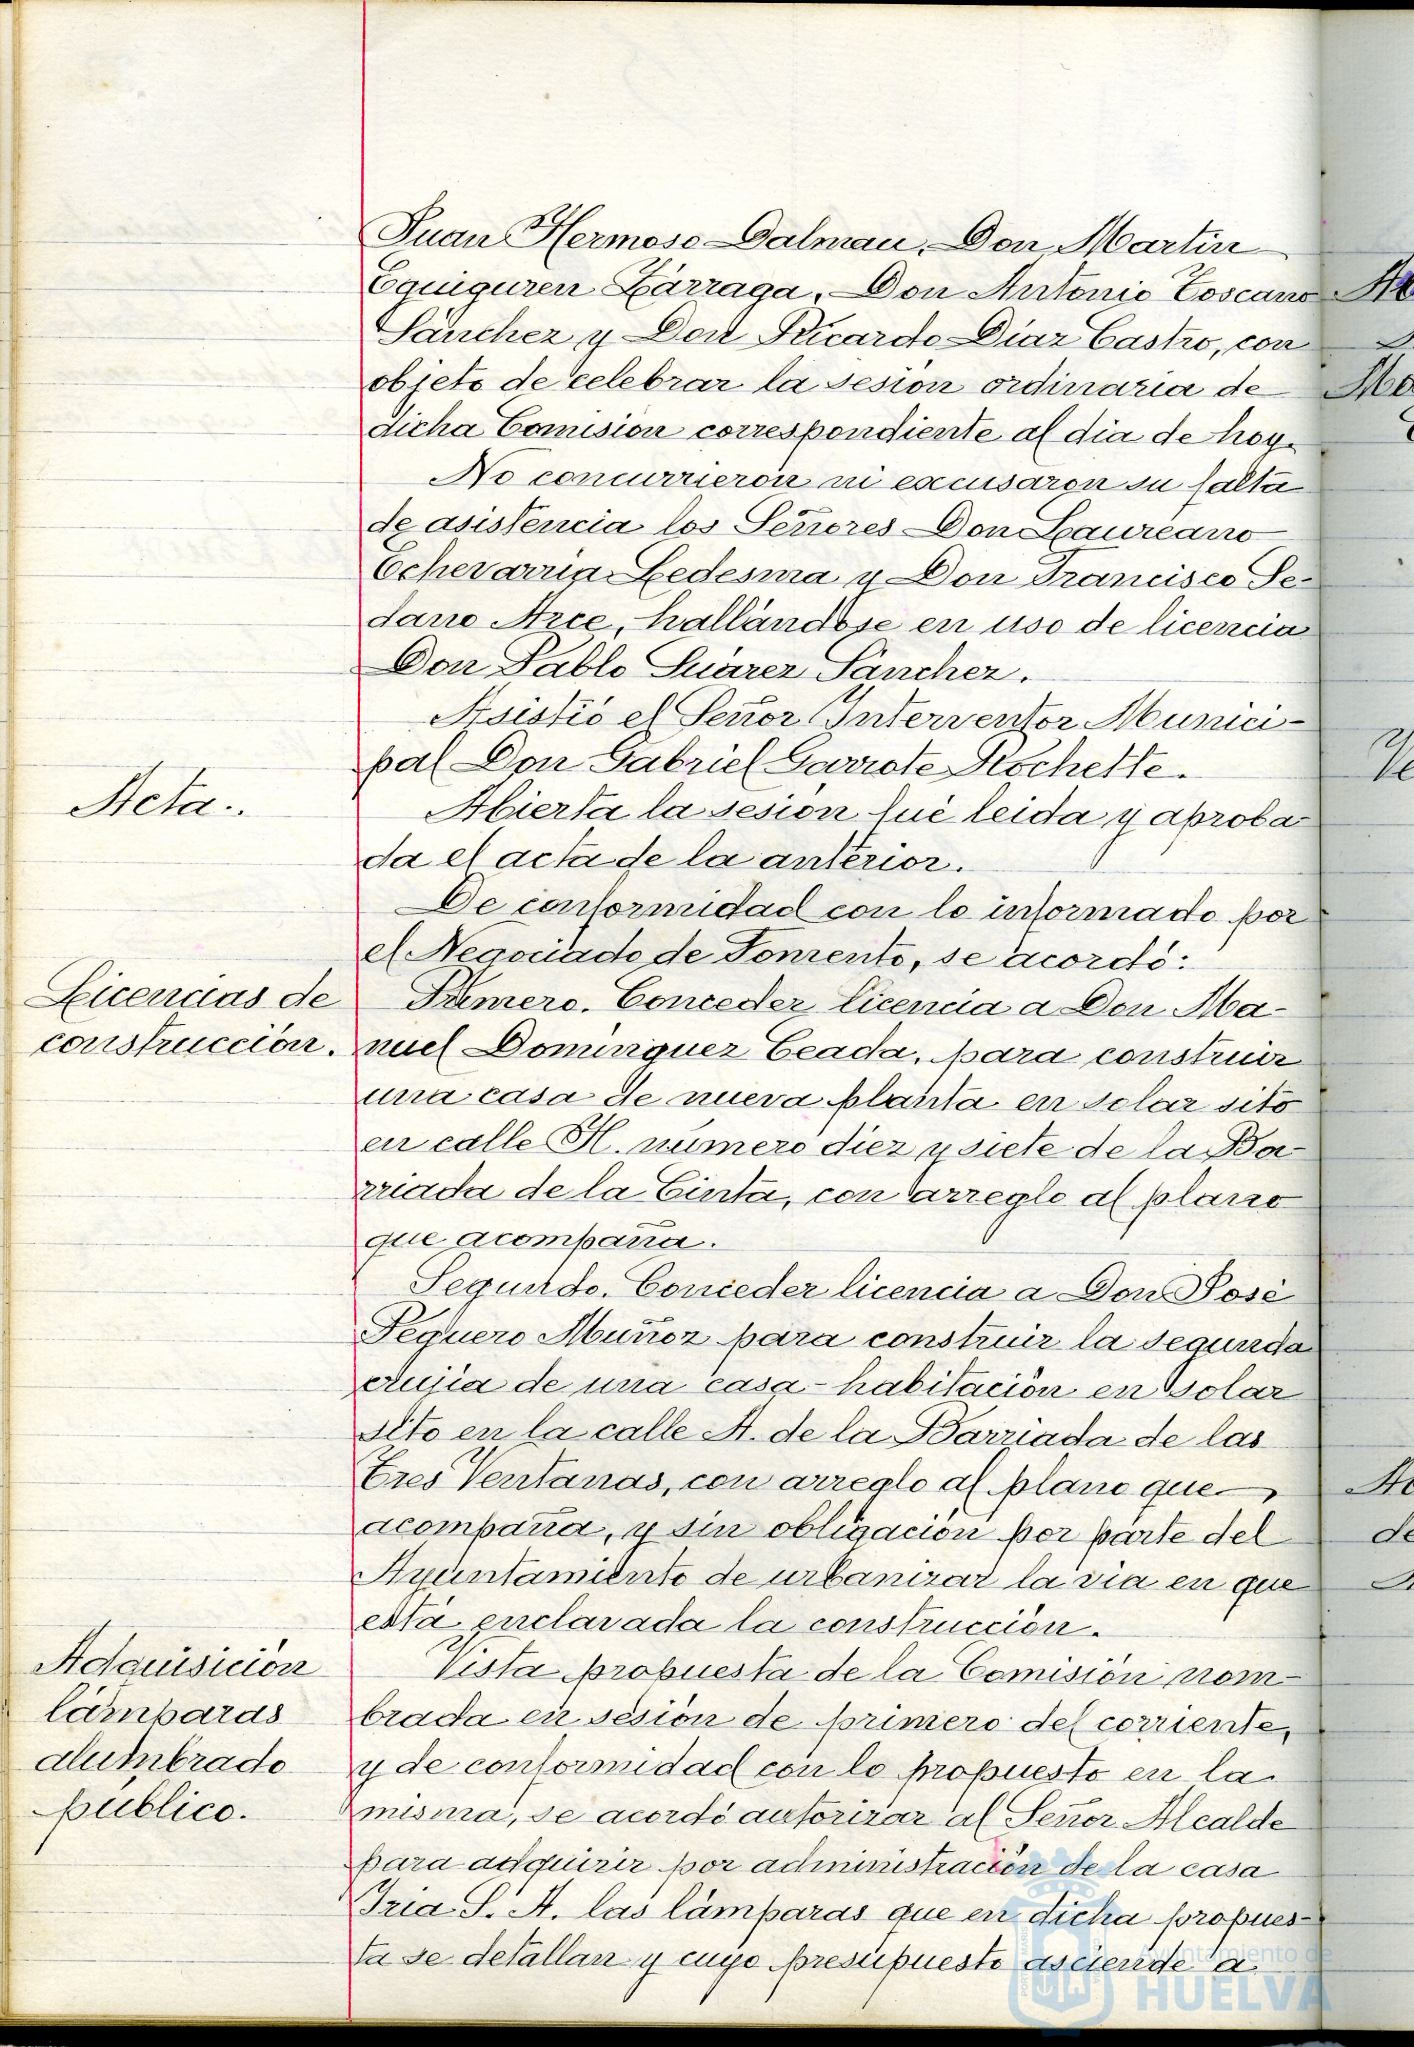 Juan Hermoso Dalmau, Don Martin
Eguiguren Zárraga, Don Antonio Toscano
Sánchez y Don Ricardo Diaz Castro, con
objeto de celebrar la sesión ordinaria de
dicha Comisión correspondiente al dia de hoy.
No concurrieron ni excusaron su falta
de asistencia los Señores Don Laureano
Echevarria Ledesma y Don Francisco Se-
dano Arce, hallándose en uso de licencia
Don Pablo Suárez Sánchez.
Asistió el Señor Interventor Munici-
pal Don Gabriel Garrote Rochette.
Acta.
Abierta la sesión fué leida y aproba-
da el acta de la anterior.
De conformidad con lo informado por
el Negociado de Fomento, se acordó:
Licencias de
construcción.
Primero. Conceder licencia a Don Ma-
nuel Dominguez Ceada, para construir
una casa de nueva planta en solar sito
en calle H. número diez y siete de la Ba-
rriada de la Cinta, con arreglo al plano
que acompaña.
Segundo. Conceder licencia a Don José
Peguero Muñoz para construir la segunda
crujia de una casa-habitación en solar
sito en la calle A. de la Barriada de las
Tres Ventanas, con arreglo al plano que
acompaña, y sin obligación por parte del
Ayuntamiento de urbanizar la via en que
está enclavada la construcción.
Adquisición
lámparas
alumbrado
público.
Vista propuesta de la Comisión nom-
brada en sesión de primero del corriente,
y de conformidad con lo propuesto en la
misma, se acordó autorizar al Señor Alcalde
para adquirir por administración de la casa
Iria S. A. las lámparas que en dicha propues-
ta se detallan y cuyo presupuesto asciende a
Ayuntamiento de
HUELVA